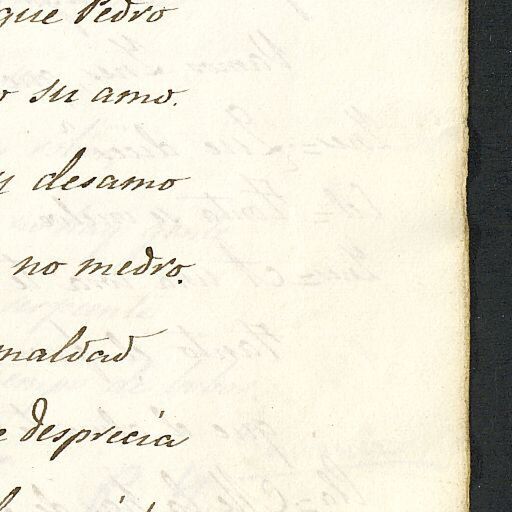 que Pedro
su amo.
y desamo
no medro.
maldad
desprecia